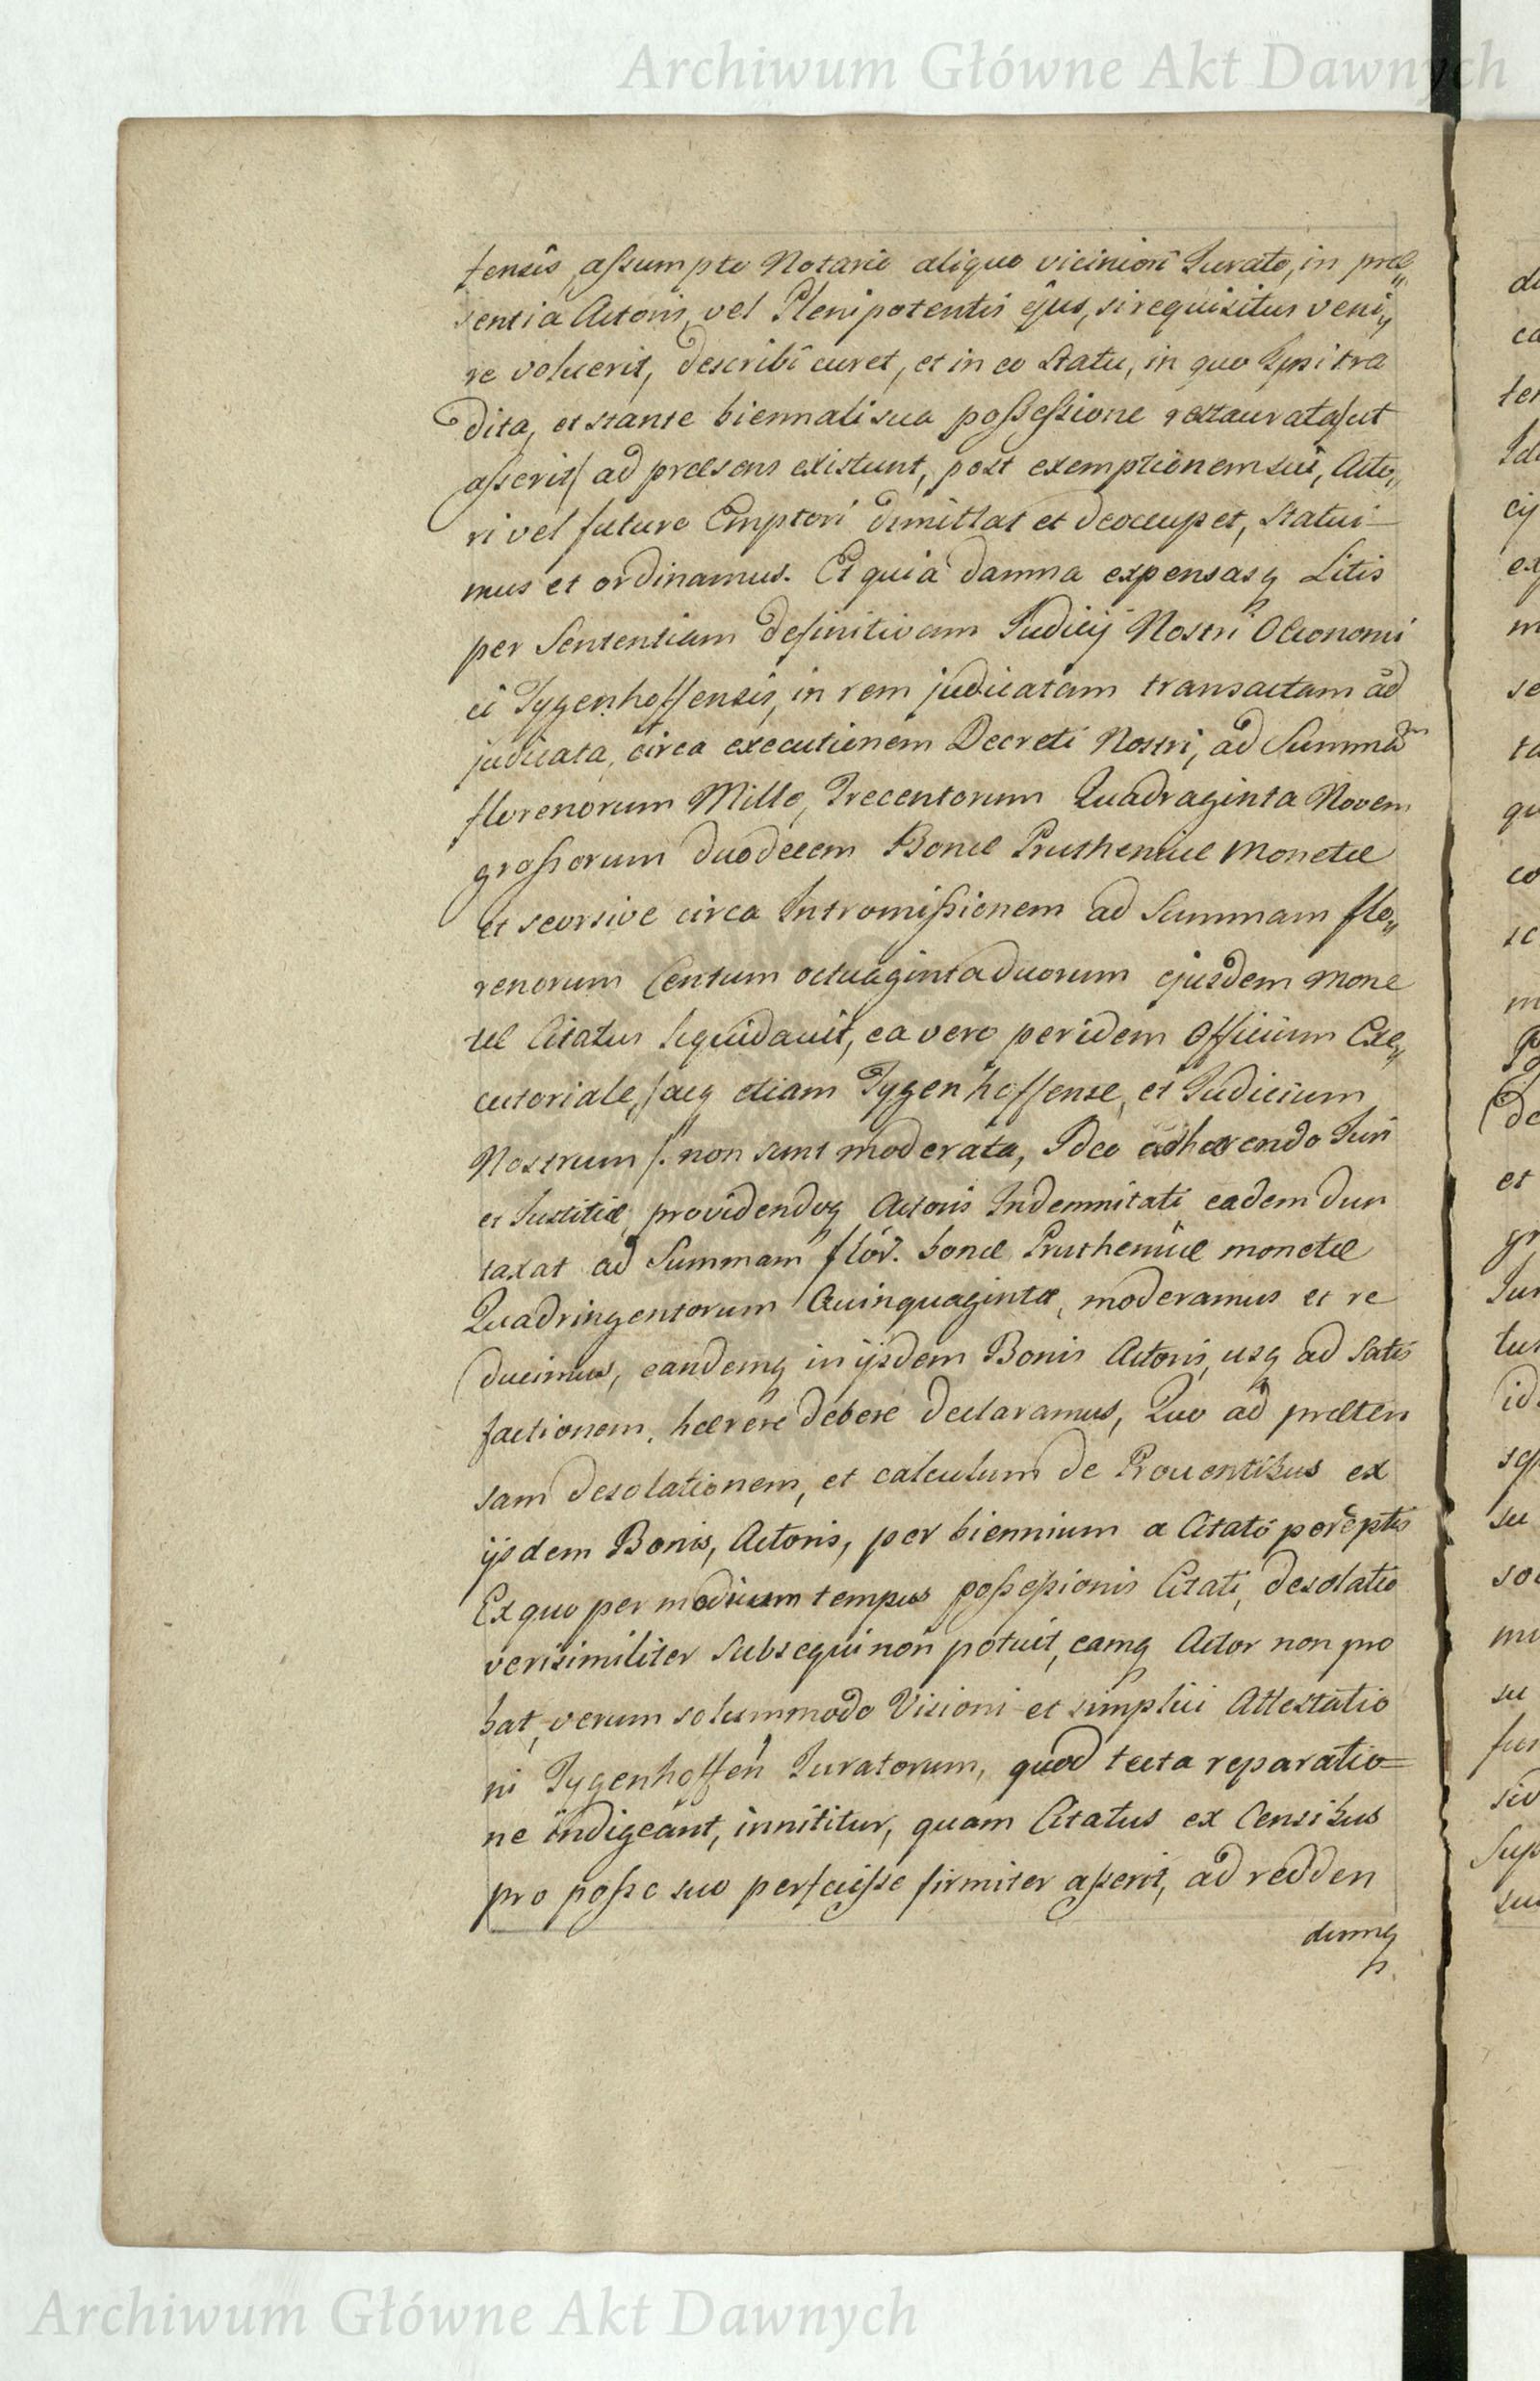 Archiwum Główne Akt Dawnych
tensis, assumpto Notario aliquo viciniori Jurato, in præ„
sentia Actoris, vel Plenipotentis ejus, si requisitus veni„
re voluerit, describi curet, et in eo statu, in quo ipsi tra
dita, et stante biennali sua possessione restaurata /ut
asserit/ ad præsens existunt, post exemptionem sui, Acto„
ri vel futuro Emptori dimittat et deoccupet, statui-
mus et ordinamus. Et quia damna expensasq Litis
per Sententiam definitivam Judicij Nostri Oeconomi
ci Tygenhoffensis, in rem judicatam transactam ad
judicata, circa executionem Decreti Nostri, ad Summam
florenorum Mille, Trecentorum Quadraginta Novem
grossorum duodecem Bonæ Pruthenicæ Monetæ
et seorsive circa Intromissionem ad Summam flo„
renorum Centum octuaginta duorum ejusdem mone
tæ Citatus liquidavit, ea vero per idem Officium Exe„
cutoriale, /aeq etiam Tygenhoffense, et Judicium
Nostrum /: non sunt moderata, Ideo adhærendo Juri
et Justitiæ, providendoq Actoris Indemnitati eadem dun
taxat ad Summam flor. bonæ Pruthenicæ monetæ
Quadringentorum Quinquaginta, moderamus et re
ducimus, eandemq in ijsdem Bonis Actoris, usq ad satis
factionem, hærere debere declaramus, Quo ad præten
sam desolationem, et calculum de Proventibus ex
ijsdem Bonis, Actoris, per biennium a Citato perceptis
Ex quo per modicum tempus possessionis Citati, desolatio
verisimiliter subsequi non potuit, eamq Actor non pro
bat, verum solummodo Visioni et simplici Attestatio
ni Tygenhoffen Juratorum, quod tecta reparatio=
ne indigeant, innititur, quam Citatus ex Censibus
pro posse suo perfecisse firmiter asserit, ad redden
dumq
Archiwum Główne Akt Dawnych